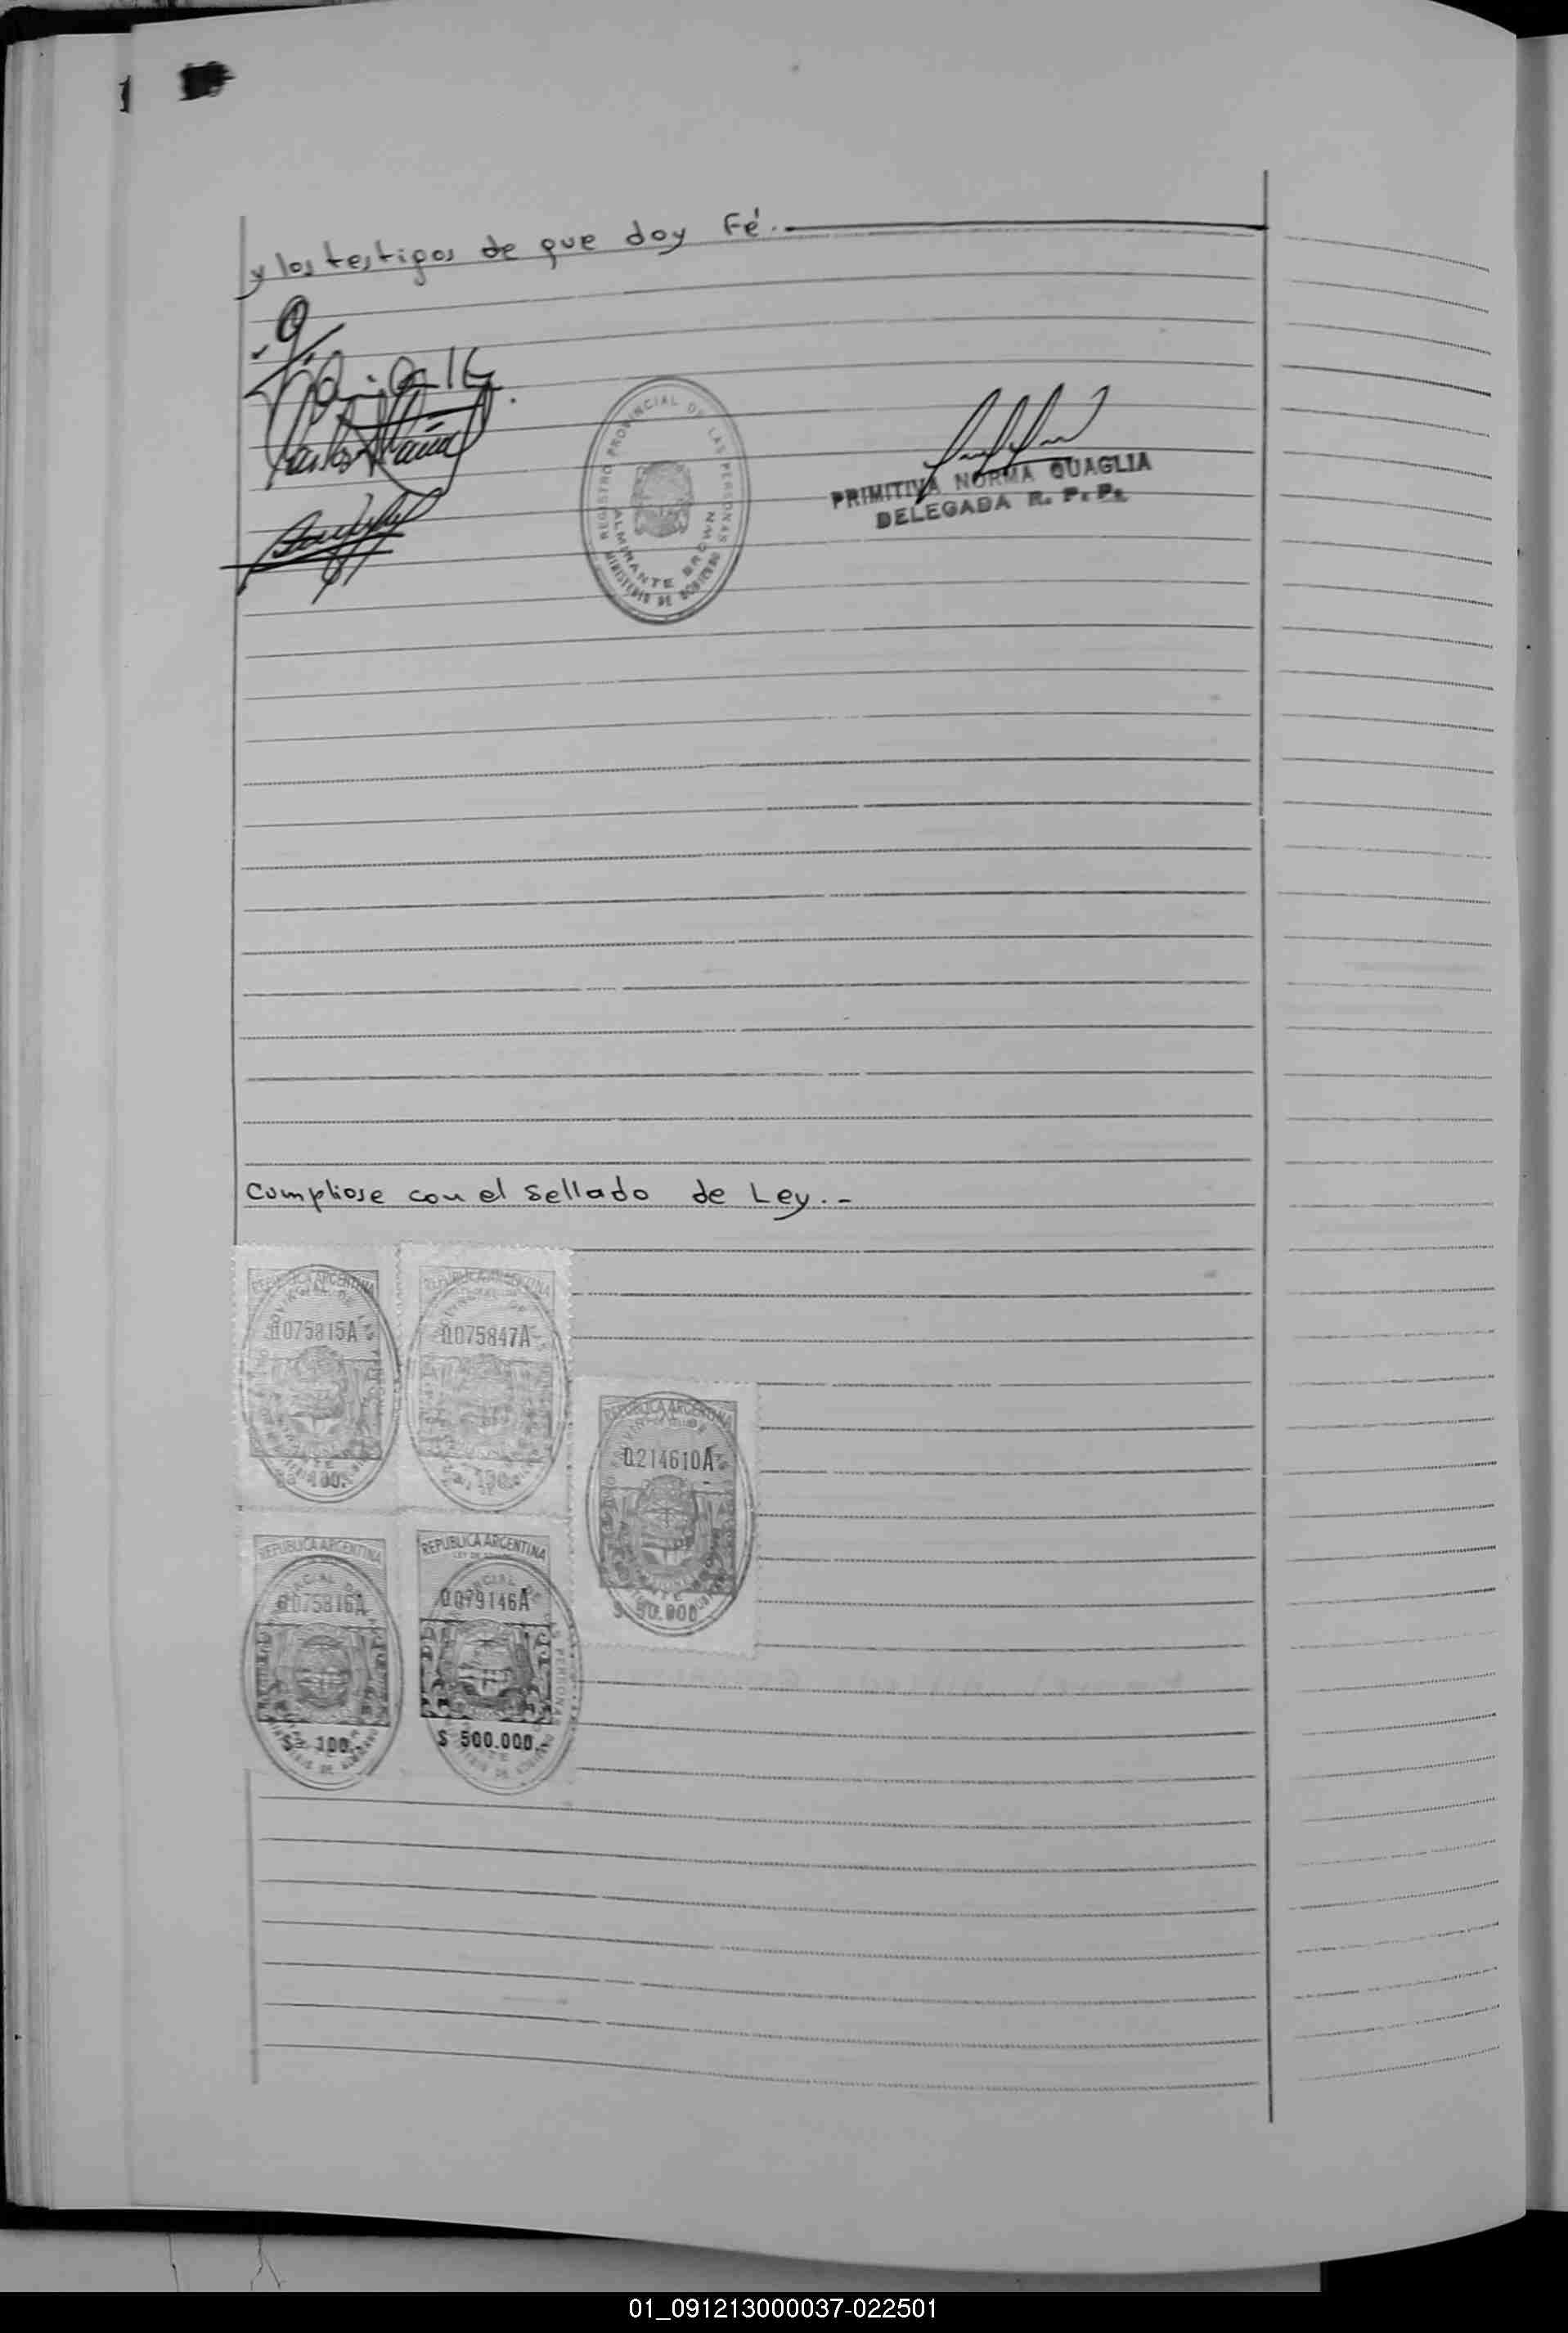 y los testigos de que doy Fé.
REGISTRO PROVINCIAL DE LAS PERSONAS
ALMIRANTE BROWN
MINISTERIO DE GOBIERNO
PRIMITIVA NORMA QUAGLIA
DELEGADA R. P. P.
Cumpliose con el Sellado de Ley.-
REPUBLICA ARGENTINA
0075815A
100.
REPUBLICA ARGENTINA
0075847A
REPUBLICA ARGENTINA
0214610A
$ 50.000
REPUBLICA ARGENTINA
0075816A
$ 100.-
REPUBLICA ARGENTINA
0079146A
$ 500.000.-
01_091213000037-022501